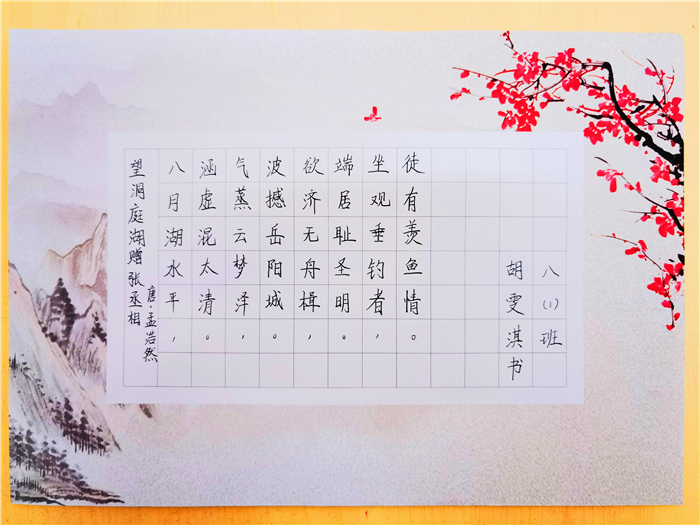 望洞庭湖赠张丞相
唐·孟浩然
八月湖水平，
涵虚混太清。
气蒸云梦泽，
波撼岳阳城。
欲济无舟楫，
端居耻圣明。
坐观垂钓者，
徒有羡鱼情。
胡雯淇书
八(1)班